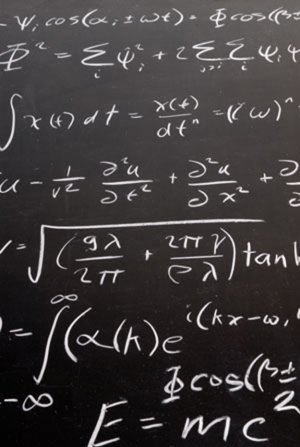 - Ψᵢ cos(αᵢ ± ωt) = Φ cos(β±
Φ² = Σᵢ Ψᵢ² + 2 Σ_{j>i} Σᵢ Ψᵢ Ψ
∫ x(t) dt = x(t)/dtⁿ = (i ω)ⁿ
u - 1/v² ∂²u/∂t² + ∂²u/∂x² + ∂
= √(gλ/2π + 2πγ/ρλ) tanh
) = ∫_{-∞}^{∞} (α(k) e^{i(kx-ω,
Φ cos(β±
2
E = mc²